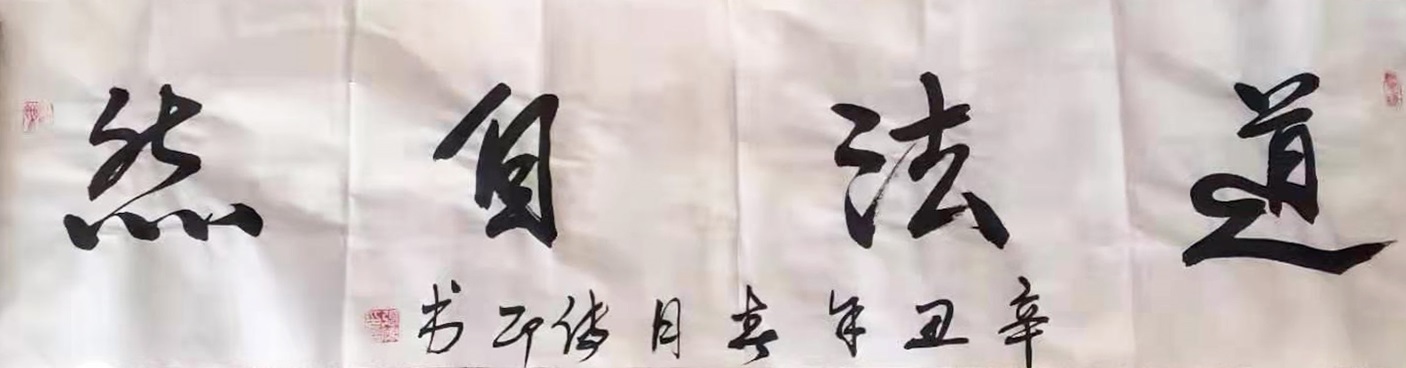 道法自然
辛丑年春月传印书